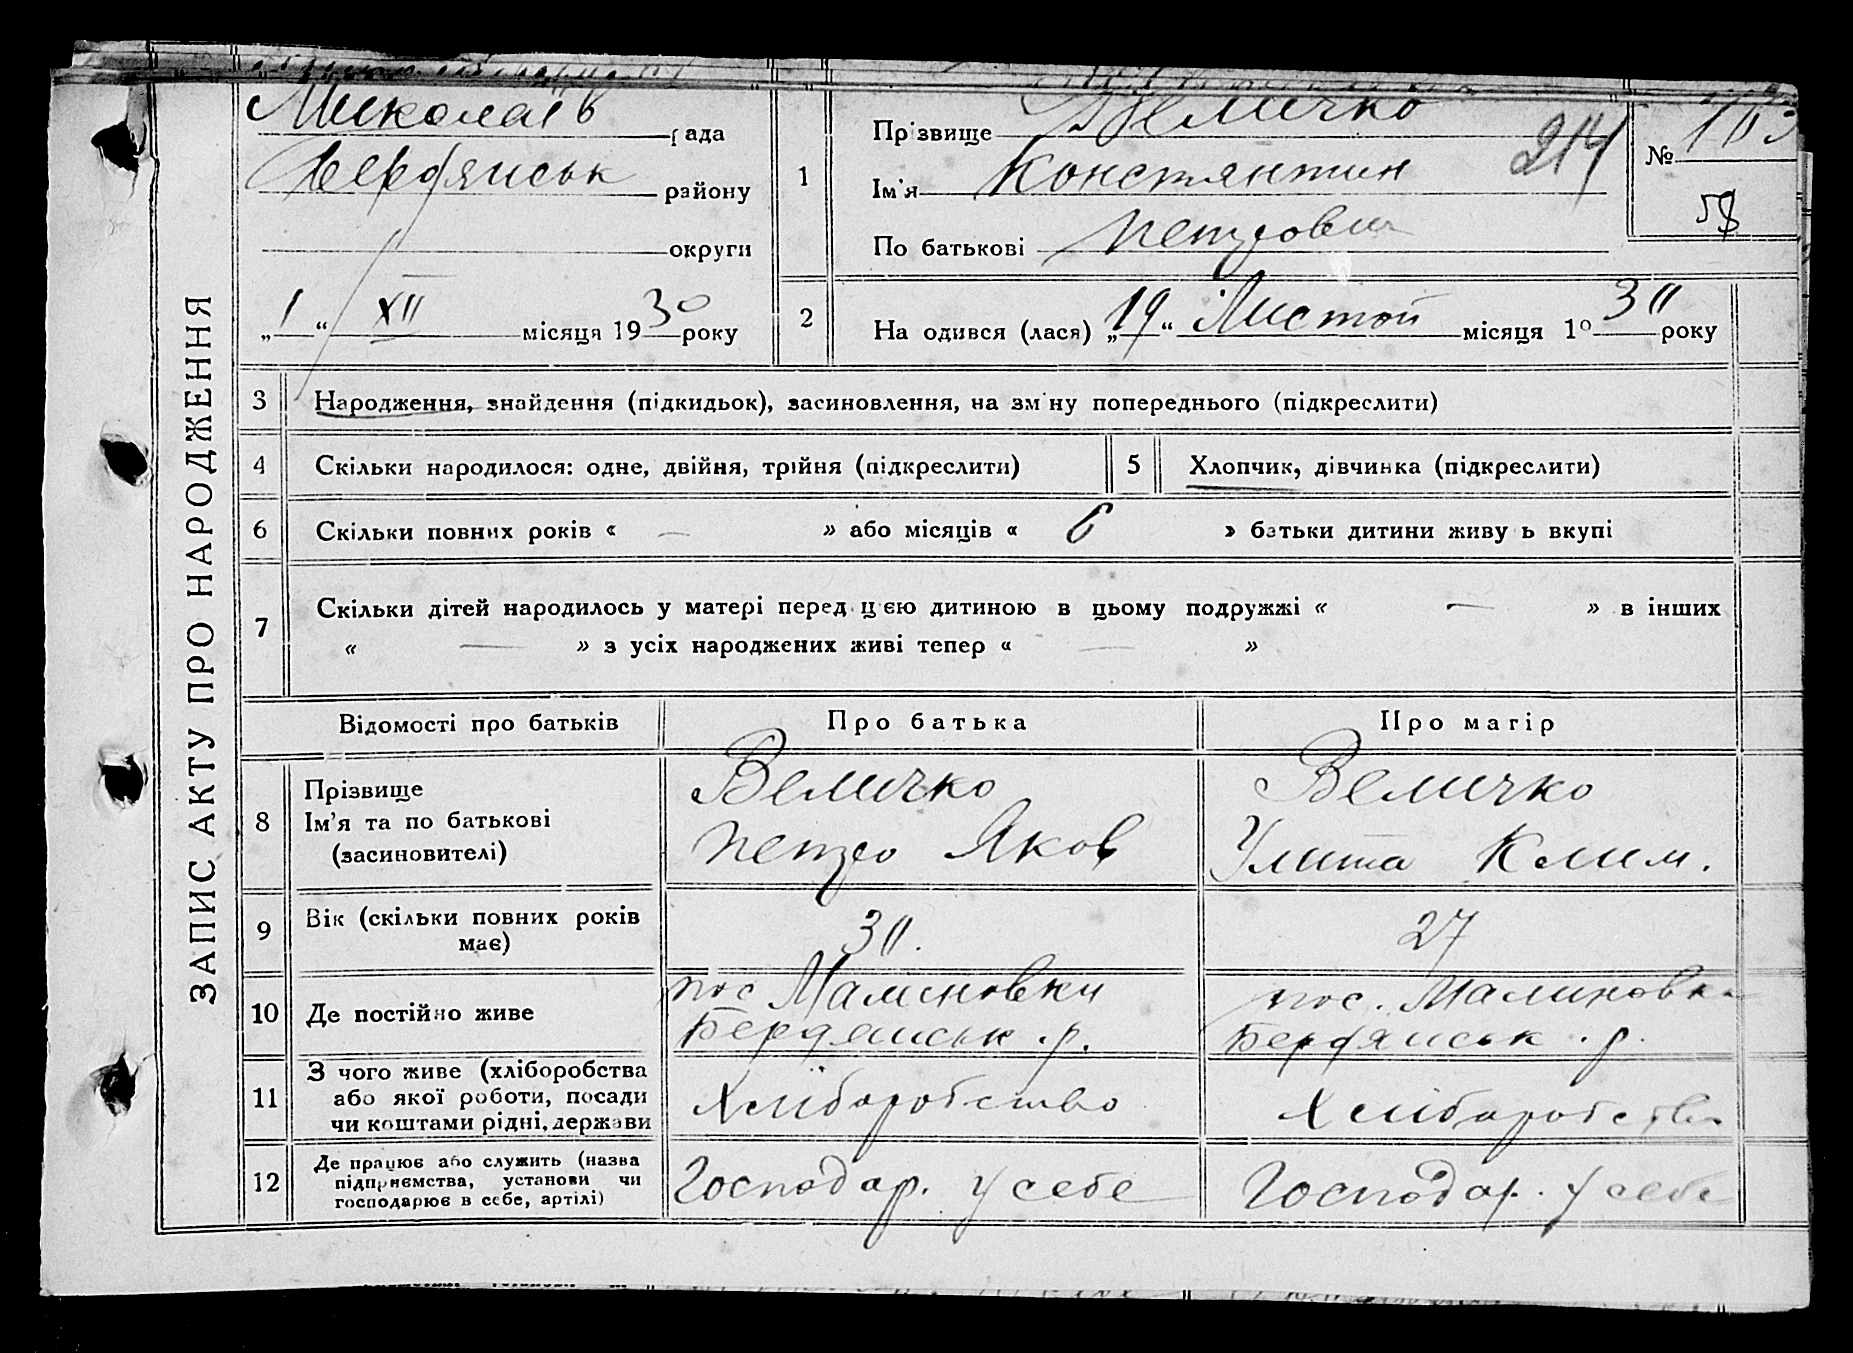 ЗАПИС АКТУ ПРО НАРОДЖЕННЯ
Миколаїв рада
Бердянськ району
округи
„1“ XII місяця 1930 року
1
Прізвище Величко
Ім'я Константин 214
По батькові Петрович
№ 163
58
2
На одився (лася) „19“ Листоп місяця 19 30 року
3 Народження, знайдення (підкидьок), засиновлення, на зміну попереднього (підкреслити)
4 Скільки народилося: одне, двійня, трійня (підкреслити) 5 Хлопчик, дівчинка (підкреслити)
6 Скільки повних років « — » або місяців « 6 » батьки дитини живу ь вкупі
7 Скільки дітей народилось у матері перед цією дитиною в цьому подружжі « — » в інших
« — » з усіх народжених живі тепер « — »
Відомості про батьків Про батька Про матір
8 Прізвище Ім'я та по батькові (засиновителі)
Величко Петро Яков
Величко Улита Клим.
9 Вік (скільки повних років має) 30. 27
10 Де постійно живе
пос Малиновки Бердянськ. р.
пос. Малиновка Бердянськ. р.
11 З чого живе (хліборобства або якої роботи, посади чи коштами рідні, держави
Хліборобство
Хліборобство
12 Де працює або служить (назва підприємства, установи чи господарює в себе, артілі)
Господар. у себе
Господар. у себе